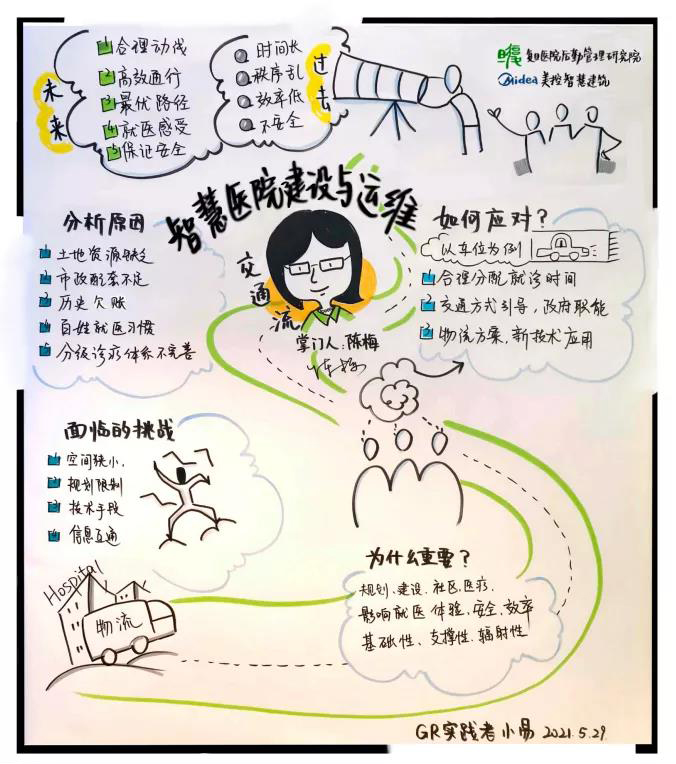 未来
1 合理动线
2 高效通行
3 最优路径
4 就医感受
5 保证安全
过去
时间长
秩序乱
效率低
不安全
复旦医院后勤管理研究院
Midea 美控智慧建筑
智慧医院建设与运维
交通流
掌门人:陈梅
分析原因
1 土地资源缺乏
2 市政配套不足
3 历史欠账
4 百姓就医习惯
5 分级诊疗体系不完善
如何应对?
以车位为例
1 合理分配就诊时间
2 交通方式引导,政府职能
3 物流方案,新技术应用
面临的挑战
1 空间狭小
2 规划限制
3 技术手段
4 信息互通
Hospital
物流
为什么重要?
规划、建设、社区、医疗、
影响就医体验、安全、效率
基础性、支撑性、辐射性
GR实践者小易 2021.5.29